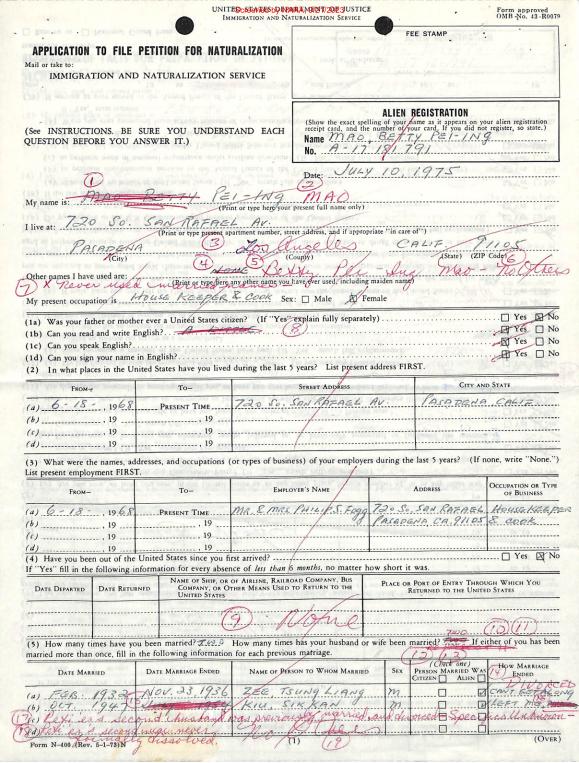 UNITED STATES DEPARTMENT OF JUSTICE
IMMIGRATION AND NATURALIZATION SERVICE
Form approved
OMB No. 43-R0079
APPLICATION TO FILE PETITION FOR NATURALIZATION
Mail or take to:
IMMIGRATION AND NATURALIZATION SERVICE
FEE STAMP
(See INSTRUCTIONS. BE SURE YOU UNDERSTAND EACH QUESTION BEFORE YOU ANSWER IT.)
ALIEN REGISTRATION
(Show the exact spelling of your name as it appears on your alien registration
receipt card, and the number of your card. If you did not register, so state.)
Name MAO, BETTY PEI-ING
No. A-17 181 791
Date: JULY 10, 1975
① ②
My name is: MAO BETTY PEI-ING MAO
(Print or type here your present full name only)
I live at: 720 SO. SAN RAFAEL AV.
(Print or type present apartment number, street address, and if appropriate "in care of")
PASADENA ③ Los Angeles CALIF. 91105
(City) (County) (State) (ZIP Code)
④ ⑤ ⑥
Other names I have used are: NONE Betty Pei-Ing Mao - No Others
(Print or type here any other name you have ever used, including maiden name)
⑦ X never used
My present occupation is HOUSE KEEPER & COOK Sex: Male X Female
(1a) Was your father or mother ever a United States citizen? (If "Yes" explain fully separately) Yes X No
(1b) Can you read and write English? A LITTLE ⑧ X Yes No
(1c) Can you speak English? X Yes No
(1d) Can you sign your name in English? X Yes No
(2) In what places in the United States have you lived during the last 5 years? List present address FIRST.
FROM- TO- STREET ADDRESS CITY AND STATE
(a) 6-18-, 1968 PRESENT TIME 720 SO. SAN RAFAEL AV. PASADENA CALIF
(b) , 19 , 19
(c) , 19 , 19
(d) , 19 , 19
(3) What were the names, addresses, and occupations (or types of business) of your employers during the last 5 years? (If none, write "None.")
List present employment FIRST.
FROM- TO- EMPLOYER'S NAME ADDRESS OCCUPATION OR TYPE OF BUSINESS
(a) 6-18-, 1968 PRESENT TIME MR. & MRS. PHILIP S. Fogg 720 SO. SAN RAFAEL HOUSEKEEPER
(b) , 19 , 19 PASADENA, CA. 91105 & COOK
(c) , 19 , 19
(d) , 19 , 19
(4) Have you been out of the United States since you first arrived? Yes X No
If "Yes" fill in the following information for every absence of less than 6 months, no matter how short it was.
DATE DEPARTED DATE RETURNED NAME OF SHIP, OR OF AIRLINE, RAILROAD COMPANY, BUS COMPANY, OR OTHER MEANS USED TO RETURN TO THE UNITED STATES PLACE OR PORT OF ENTRY THROUGH WHICH YOU RETURNED TO THE UNITED STATES
⑨ None
⑩ ⑪
(5) How many times have you been married? How many times has your husband or wife been married? If either of you has been
married more than once, fill in the following information for each previous marriage.
DATE MARRIED DATE MARRIAGE ENDED NAME OF PERSON TO WHOM MARRIED SEX (Check one) PERSON MARRIED WAS CITIZEN ALIEN HOW MARRIAGE ENDED
(a) FEB. 1932 NOV. 23, 1936 ZEE TSUNG LIANG M DIVORCED
(b) OCT. 1947 KIU, SIK KAN M LEFT ME
Pet's second husband was previously married and divorced
(d)
⑲
Form N-400 (Rev. 5-1-73)N (1) (OVER)